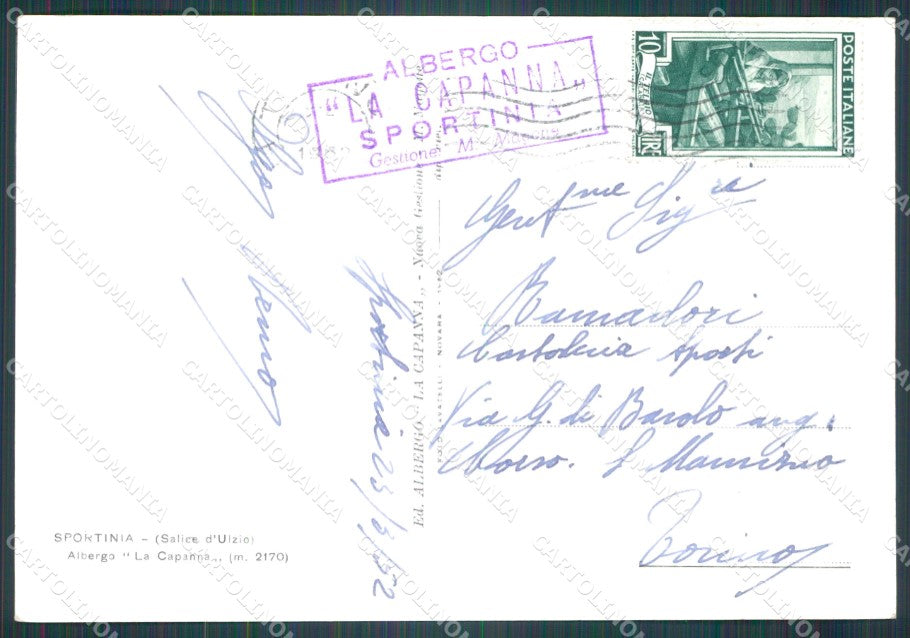 ALBERGO
"LA CAPANNA"
SPORTINIA
Gestione M.
POSTE ITALIANE
10
LIRE
Gent.me Sig.re
Cartoleria Sporti
Via G. di Barolo ang.
Corso. S Maurizio
Torino
Sportinia 23/3/52
Ed. ALBERGO "LA CAPANNA" - Nuova Gestione
NOVARA - 1952
SPORTINIA - (Salice d'Ulzio)
Albergo "La Capanna" (m. 2170)
CARTOLINOMANIA